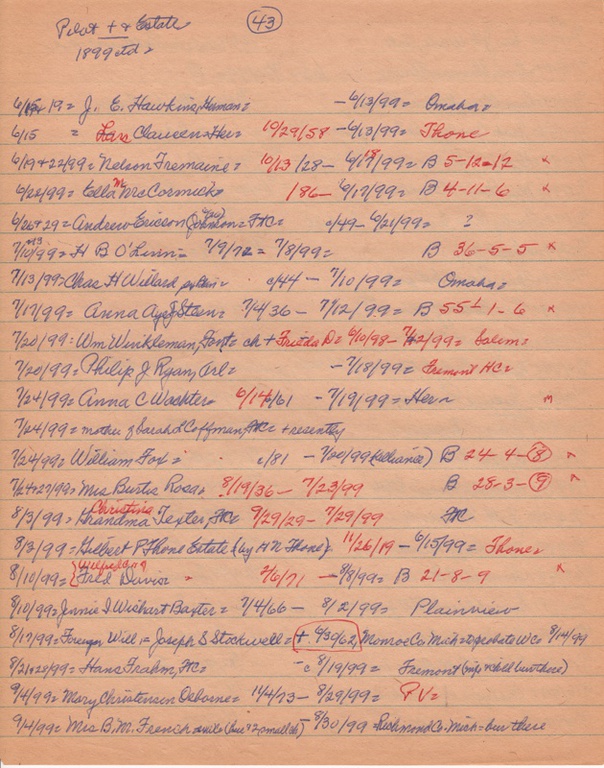 Pilot + & Estate (43)
1899 etd =
6/15 + 19 = J. E. Hawkins, Herman = - 6/13/99 = Omaha =
6/15 = Lars Clausen = Her = 10/29/58 - 6/13/99 = Thone
6/19 + 22/99 = Nelson Fremaine = 10/13/28 - 6/18/99 = B 5-12-12 x
6/22/99 = Ella M McCormick = /86 - 6/17/99 = B 4-11-6 x
6/26 + 29 = Andrew Ericson (Johnson = c/49 - 6/21/99 = ?
7/10 + 13/99 = H B O'Linn = 7/9/72 = 7/8/99 = B 36-5-5 x
7/13/99 = Chas H Willard, c/44 - 7/10/99 = Omaha =
7/17/99 = Anna Steen = 7/4/36 - 7/12/99 = B 55-1-6 x
7/20/99 : Wm Winkleman, Font = ch + Frieda D = 6/10/98 - 7/12/99 = Salem =
7/20/99 = Philip J Ryan, Arl = - 7/18/99 = Fremont HC =
7/24/99 = Anna C Wachter = 6/14/61 - 7/19/99 = Her
7/24/99 = mother of Sarah L Coffman, + recently
7/24/99 = William Fox = c/81 - 7/20/99 (Alliance) B 24-4-(8) x
7/24 + 27/99 = Mrs Burtis Rosa = 8/19/36 - 7/23/99 B 28-3-(9) x
8/3/99 = Grandma Christina Texter, 9/29/29 - 7/29/99
8/3/99 = Gilbert P Thone Estate (by H N Thone) 11/26/19 - 6/15/99 = Thone =
8/10/99 = Fred = 2/6/71 - 8/8/99 = B 21-8-9 x
8/10/99 = Jennie I Wishart Baxter = 7/4/66 - 8/2/99 = Plainview
8/17/99 = Foreign Will = Joseph S Stockwell = + 4/30/62, Monroe Co. Mich = to probate WC = 8/14/99
8/21 + 28/99 = Hans Frahm, - c 8/19/99 = Fremont
9/4/99 = Mary Christensen Osborne = 11/4/73 - 8/29/99 = PV =
9/4/99 = Mrs B. M. French - 8/30/99 = Richmond Co. Mich = bur there